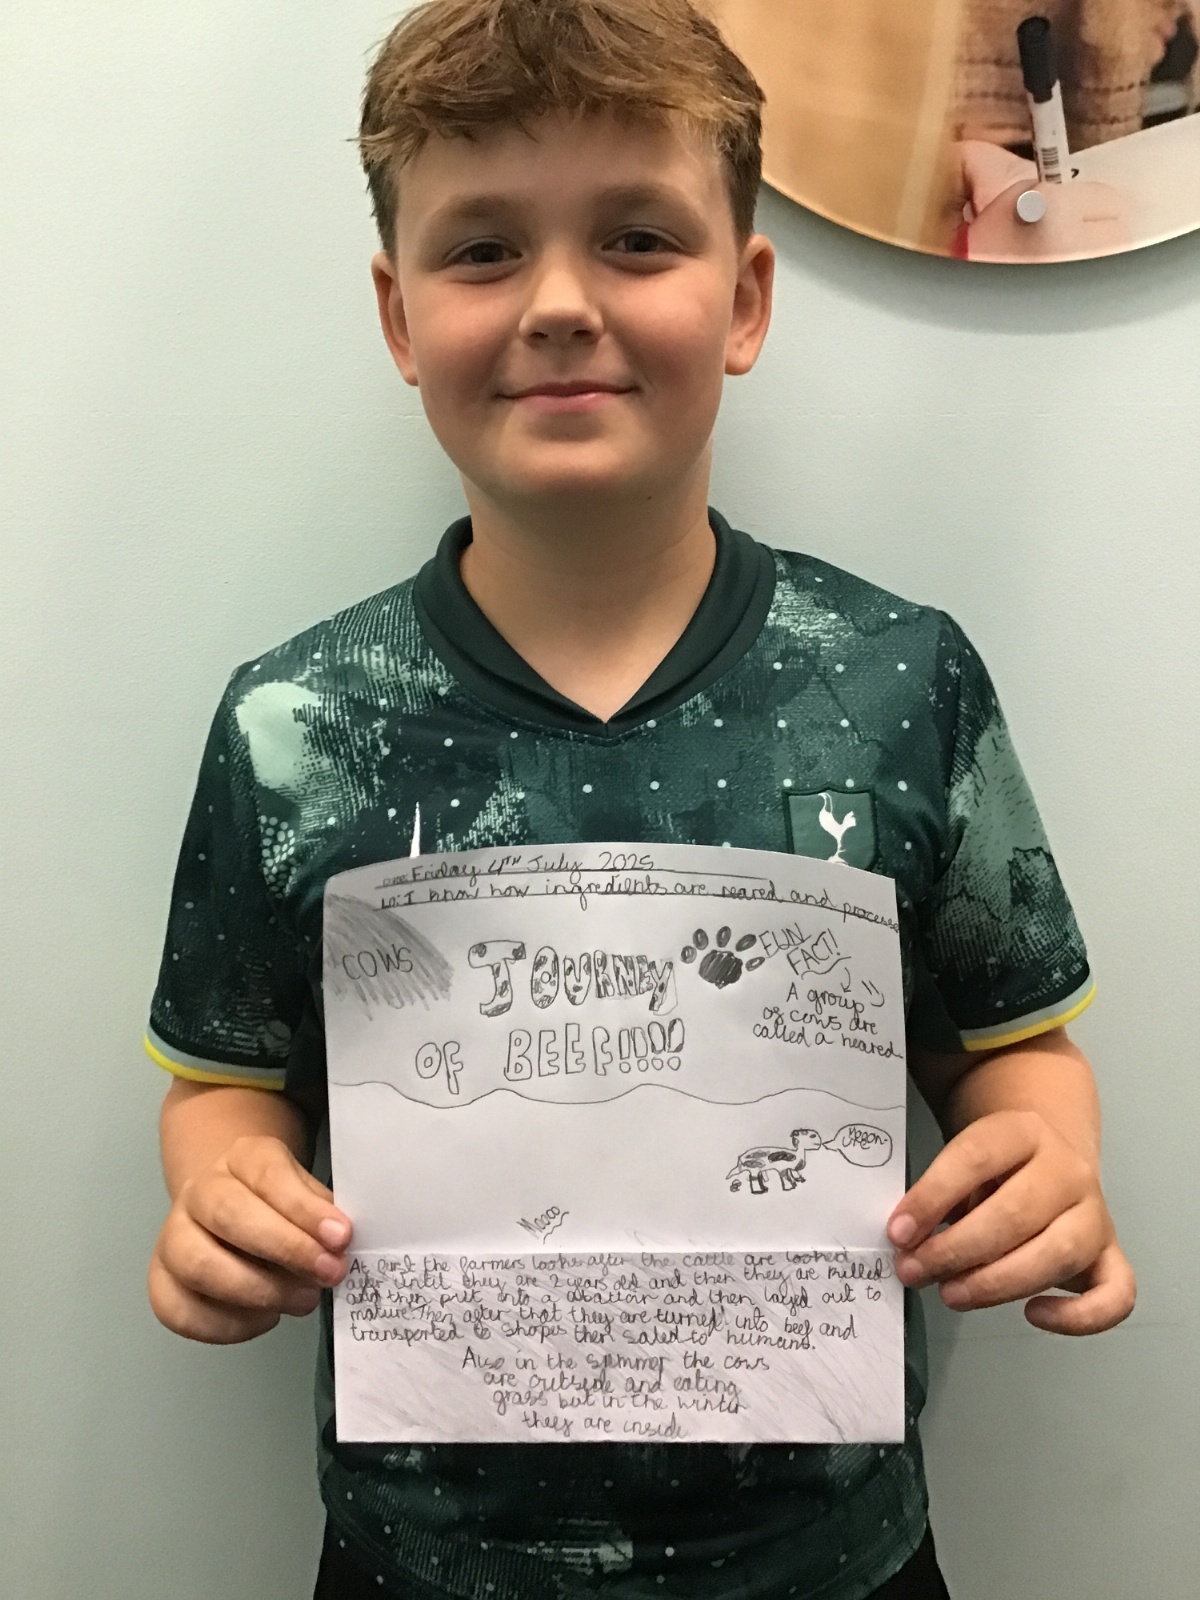 Friday 4th July 2025
I know how ingredients are reared and processe
COWS
JOURNEY
OF BEEF!!!!
FUN
FACT!
A group
of cows are
called a heared
Mooo
At first the farmers looke after the cattle are looked
after until they are 2 years old and then they are killed
and then put into a abattoir and then layed out to
mature. Then after that they are turned into beef and
transported to shopes then saled to humans.
Also in the summer the cows
are outside and eating
grass but in the winter
they are inside